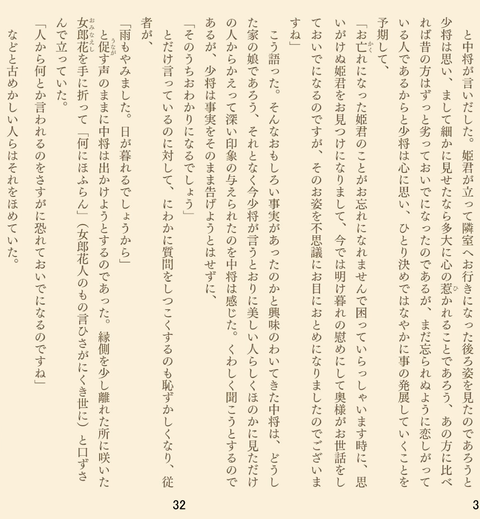 と中将が言いだした。姫君が立って隣室へお行きになった後ろ姿を見たのであろうと
少将は思い、まして細かに見せたなら多大に心の惹かれることであろう、あの方に比べ
れば昔の方はずっと劣っておいでになったのであるが、まだ忘られぬように恋しがって
いる人であるからと少将は心に思い、ひとり決めではなやかに事の発展していくことを
予期して、
「お亡れになった姫君のことがお忘れになれませんで困っていらっしゃいます時に、思
いがけぬ姫君をお見つけになりまして、今では明け暮れの慰めにして奥様がお世話をし
ておいでになるのですが、そのお姿を不思議にお目におとめになりましたのでございま
すね」
こう語った。そんなおもしろい事実があったのかと興味のわいてきた中将は、どうし
た家の娘であろう、それとなく今少将が言うとおりに美しい人らしくほのかに見ただけ
の人からかえって深い印象の与えられたのを中将は感じた。くわしく聞こうとするので
あるが、少将は事実をそのまま告げようとはせずに、
「そのうちおわかりになるでしょう」
とだけ言っているのに対して、にわかに質問をしつこくするのも恥ずかしくなり、従
者が、
「雨もやみました。日が暮れるでしょうから」
と促す声のままに中将は出かけようとするのであった。縁側を少し離れた所に咲いた
女郎花を手に折って「何にほふらん」（女郎花人のもの言ひさがにくき世に）と口ずさ
んで立っていた。
「人から何とか言われるのをさすがに恐れておいでになるのですね」
などと古めかしい人らはそれをほめていた。
32
3